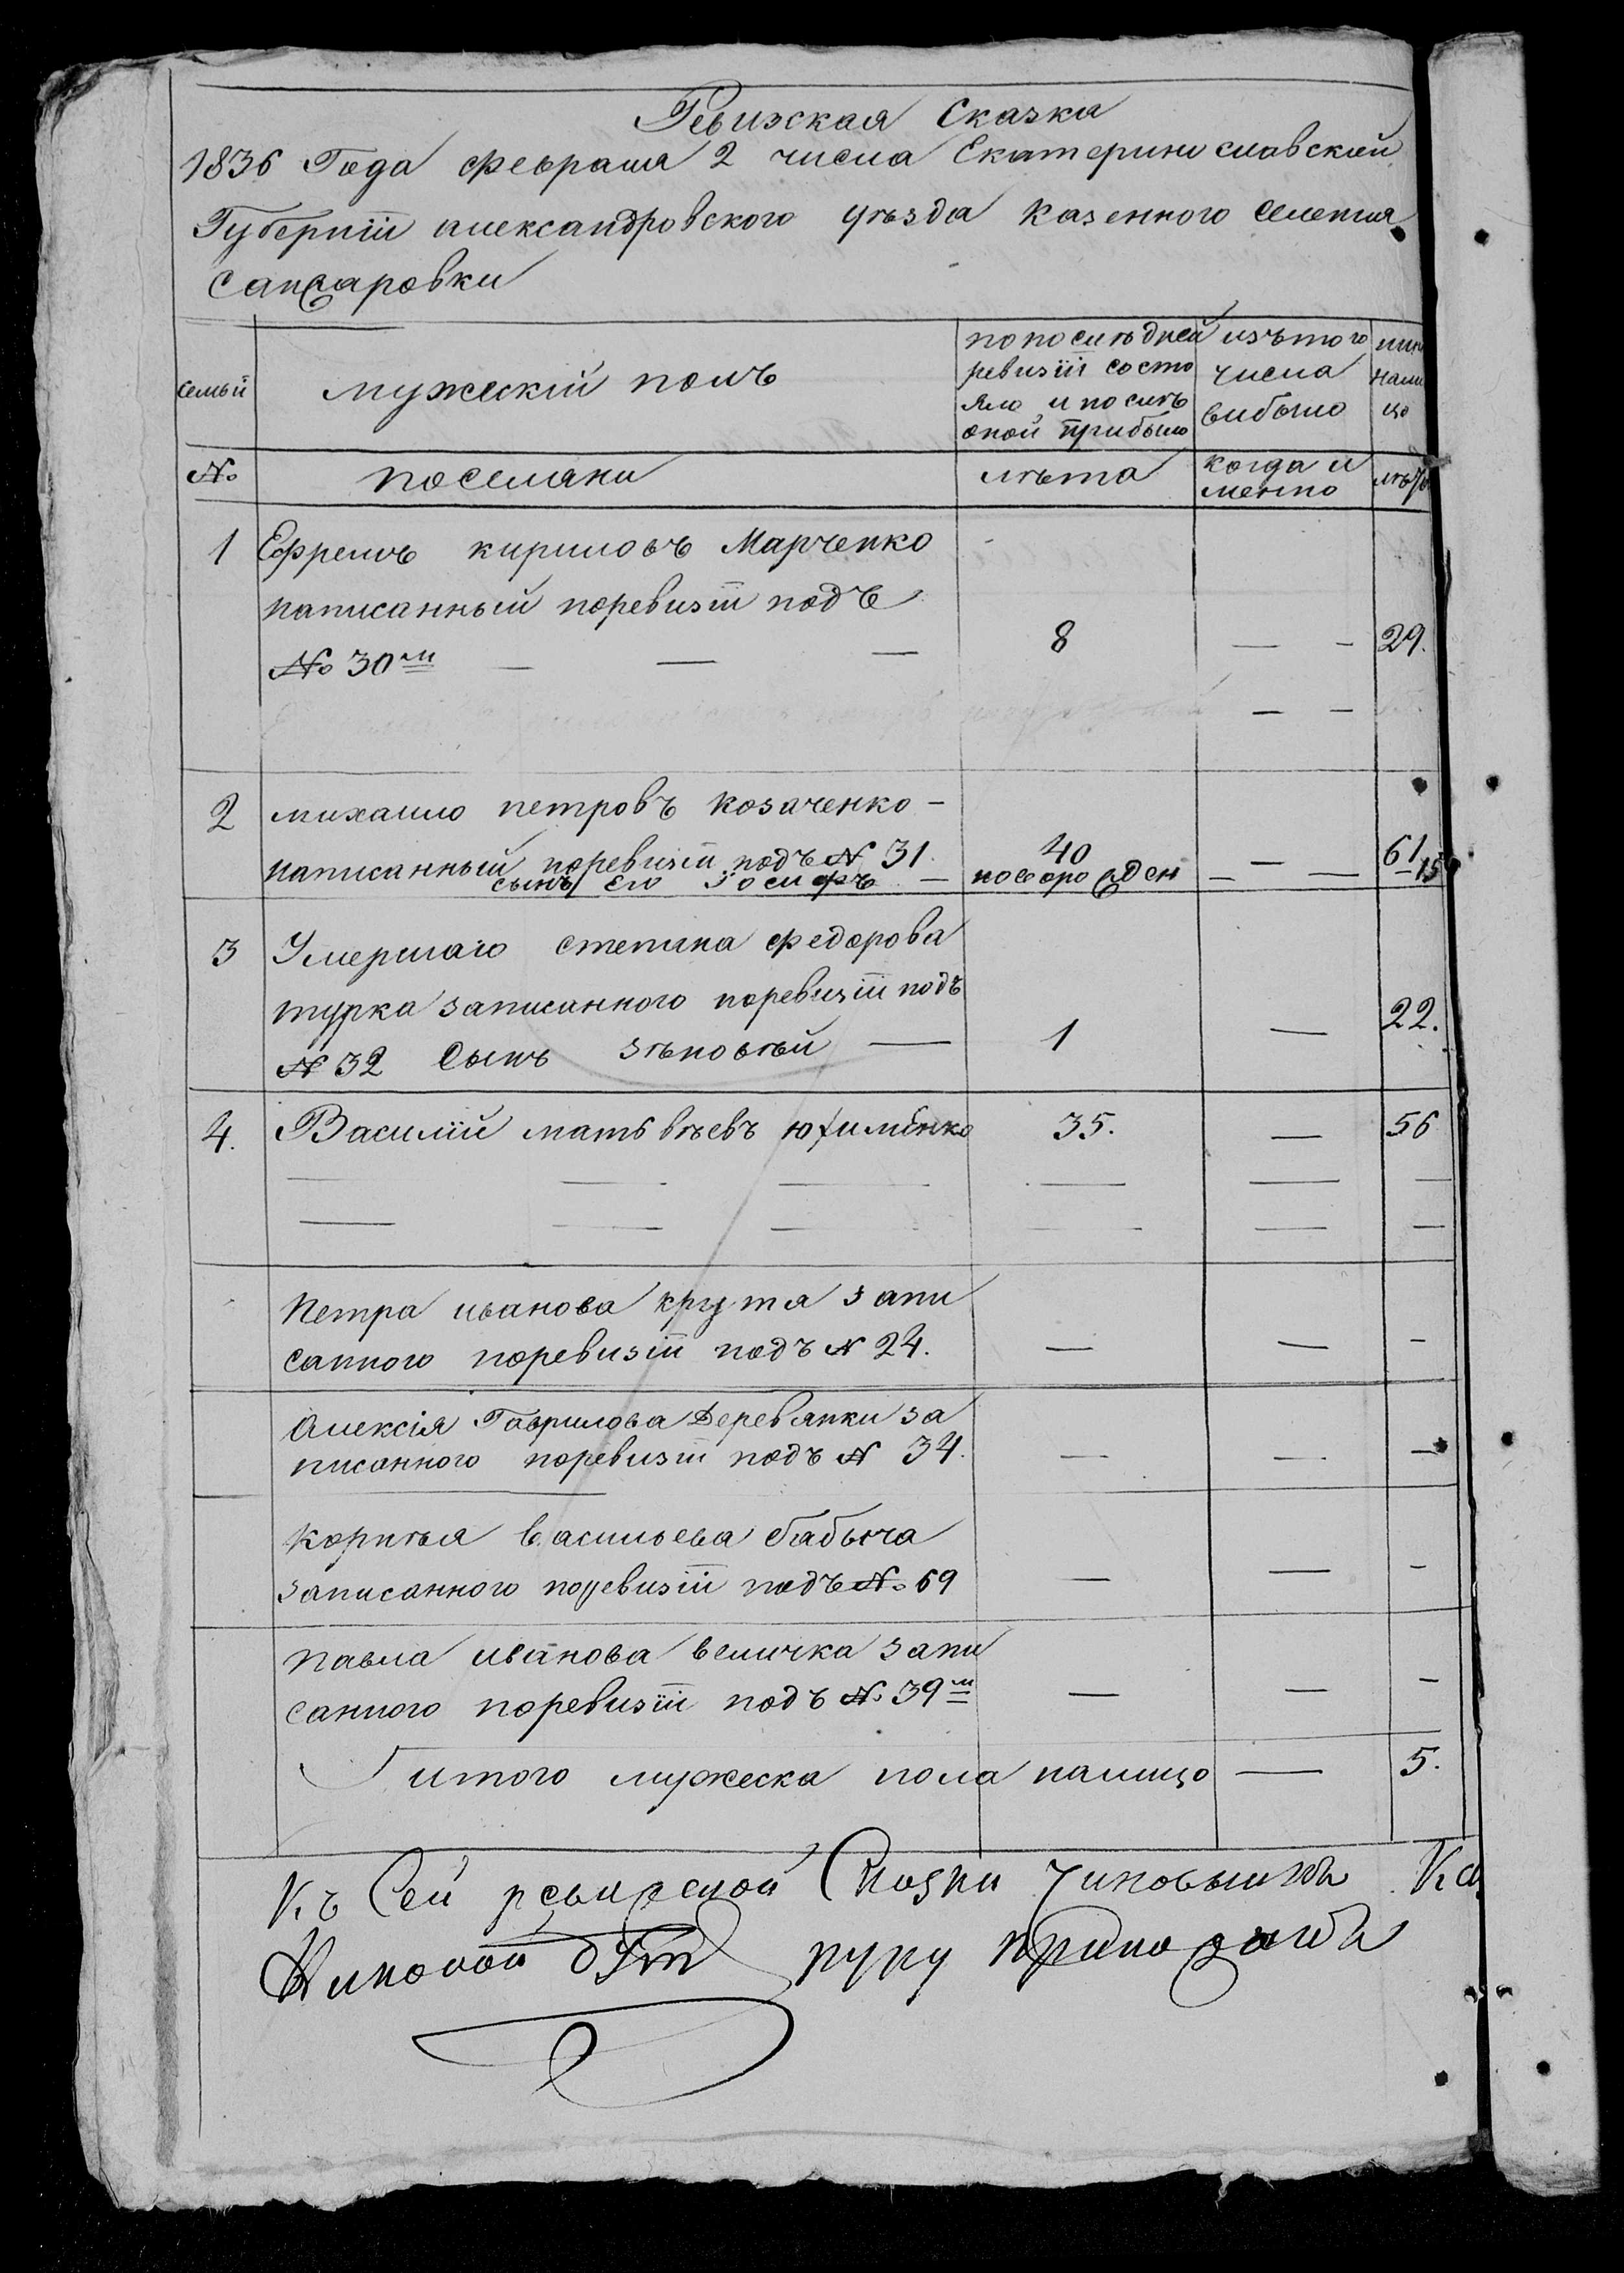 Ревизская Сказка
1836 Года февраля 2 числа Екатеринославской
Губернїи александровского уѣзда Казенного Селения
Санжаровки
семьи
мужескій полъ
по послѣдней
ревизіи состо
яло и послѣ
оной прибыло
изъ того
числа
выбыло
нынѣ
нали
цо
№
поселяни
лѣта
когда и
менно
лѣта
1 Ефремъ кириловъ Марченко
написанный поревизіи подъ
№ 30м — — — 8 — - 29.
— -
2 михаило петровъ козаченко -
написанный поревизіи подъ № 31. 40 — 61
сынъ его Іосифъ — новорожден — — 15
3 Умершаго степана федорова
турка записанного поревизіи подъ
№ 32 Сынъ зѣновѣй — 1 — 22.
4. Василій матвѣевъ юхименко 35. — 56
— — — — — —
— — — — — —
Петра иванова крутя запи
санного поревизіи подъ № 24. — — -
Алексія Гаврилова Деревянки за
писанного поревизіи подъ № 34. — — —
Корнѣя васильева бабыча
записанного поревизіи подъ № 69 — — -
павла иванова величка запи
санного поревизіи подъ № 39м — — -
итого мужеска пола налицо — 5.
Къ Сей ревизской Сказки Чиновникъ
руку приложилъ